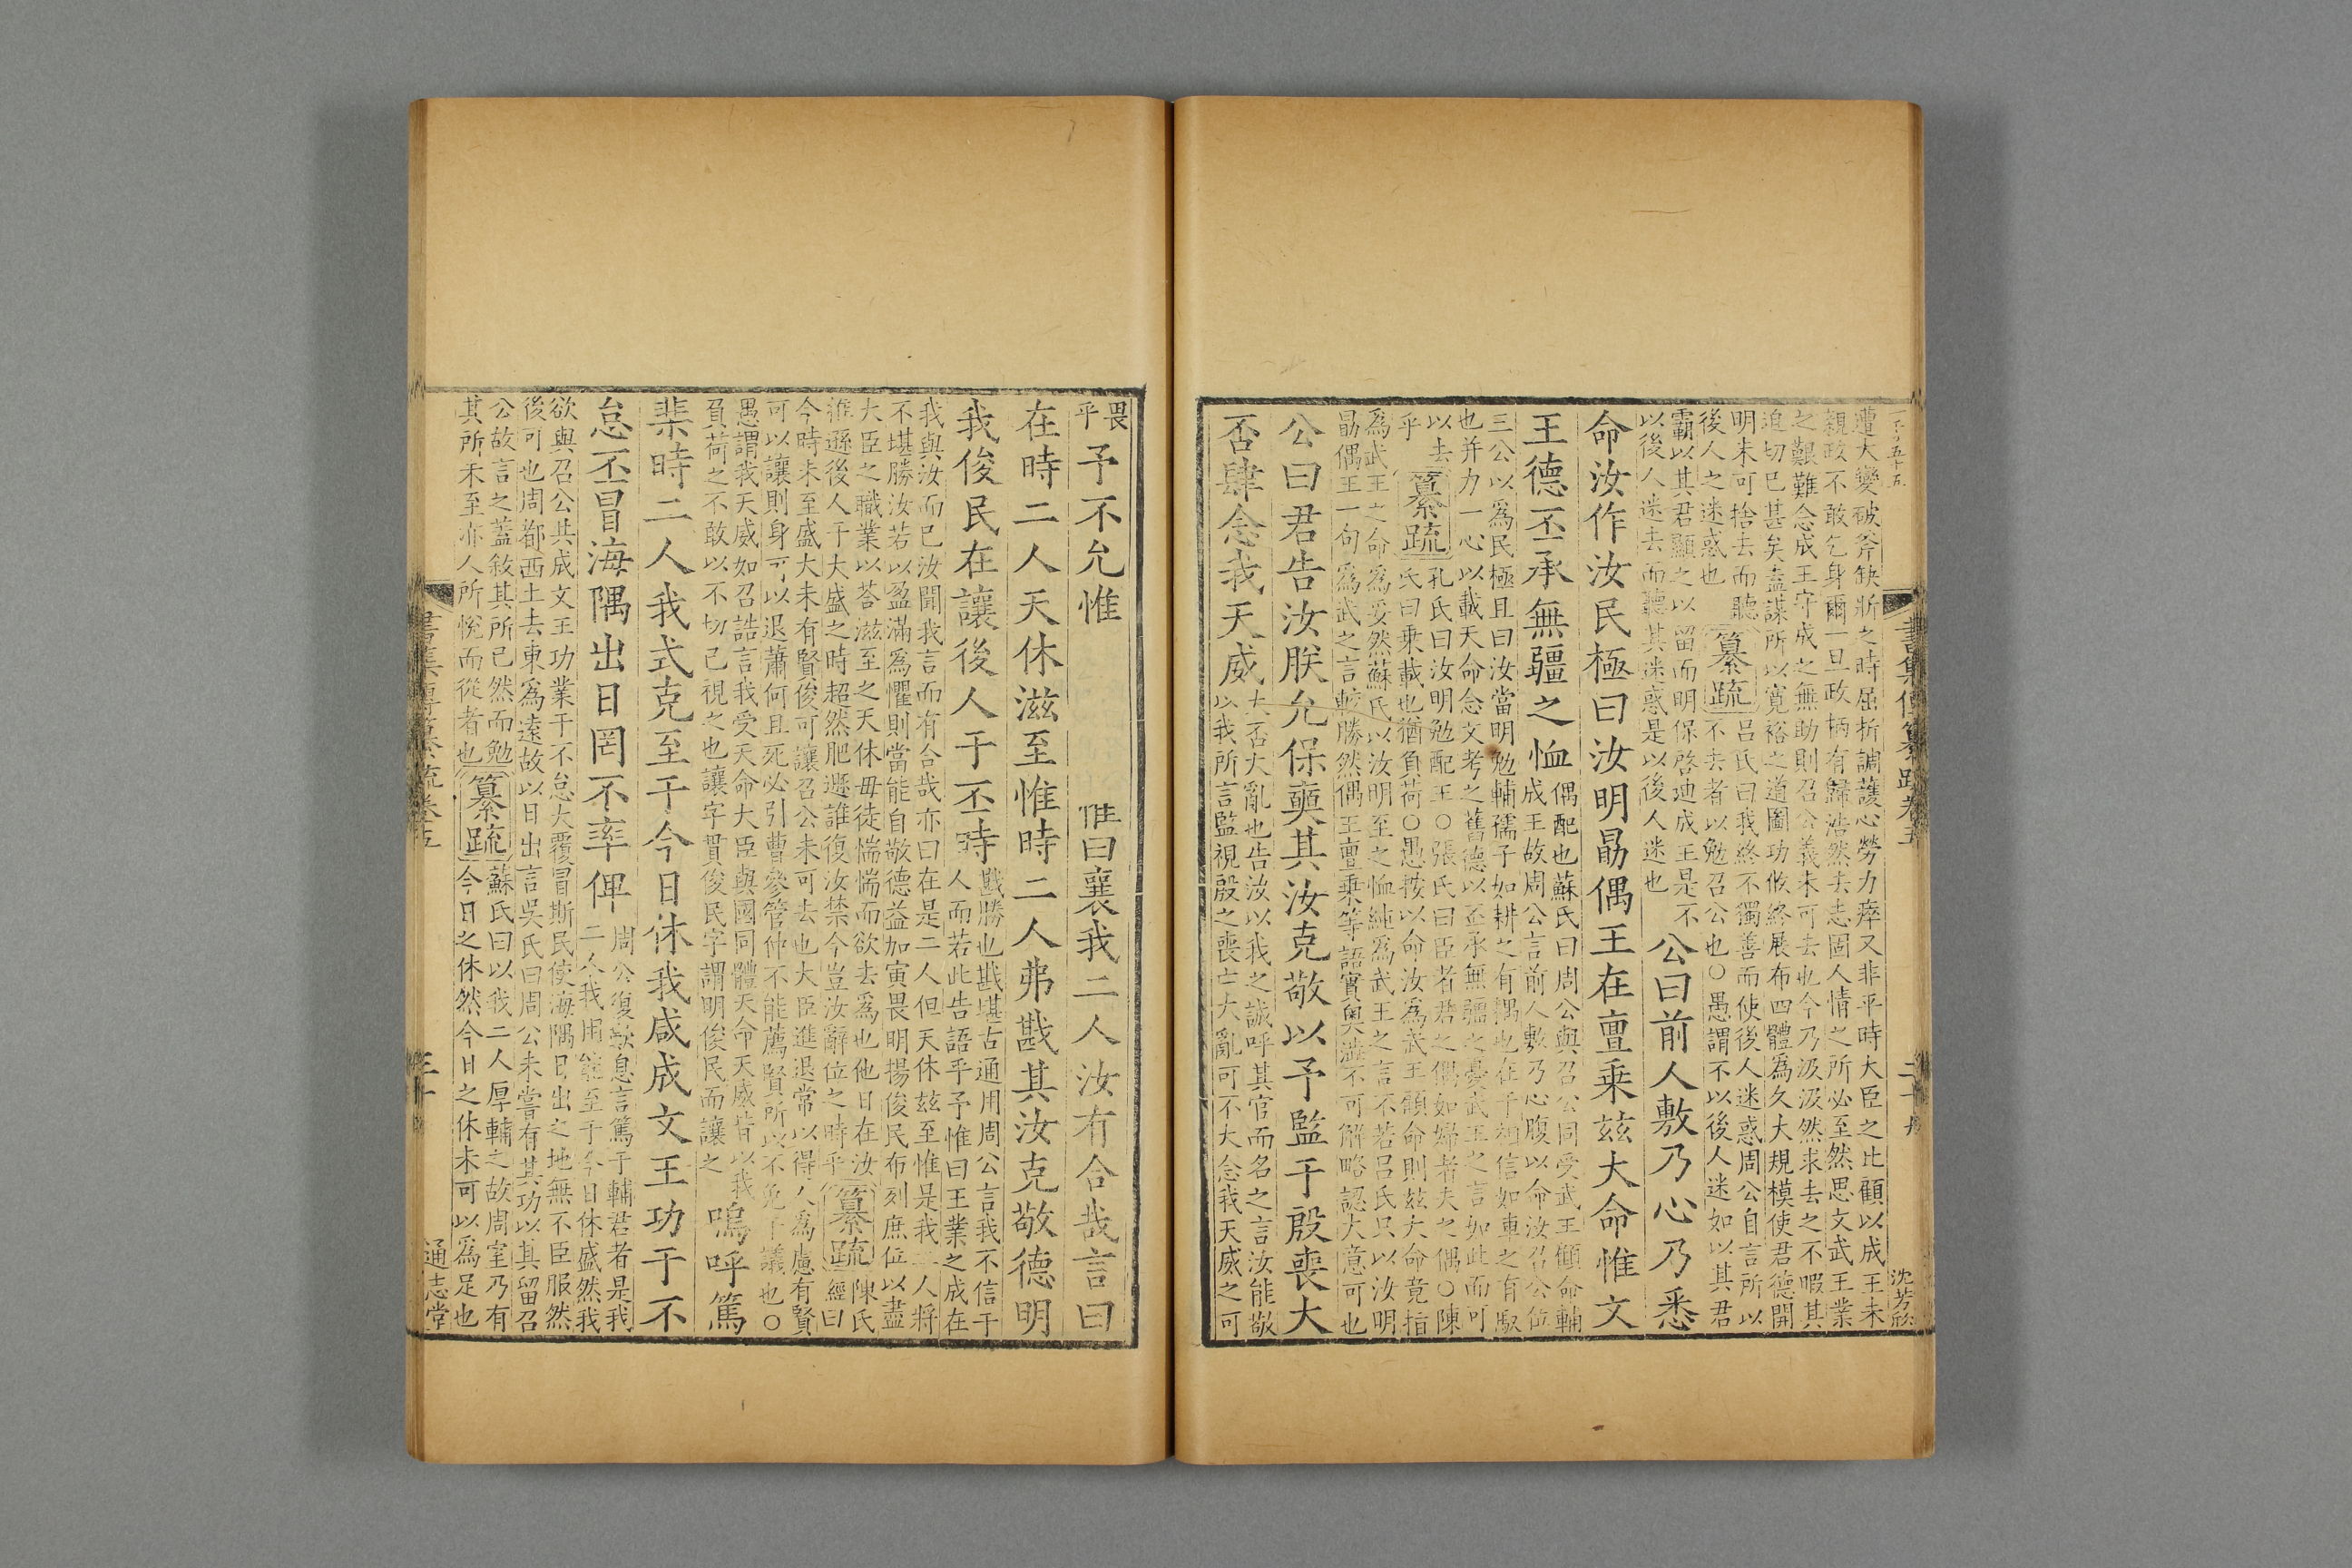 書集傳纂疏卷五
遭大變破斧缺斨之時屈折調護心勞力瘁又非平時大臣之比顧以成王未
親政不敢乞身爾一旦政柄有歸浩然去志固人情之所必至然思文武王業
之艱難念成王守成之無助則召公義未可去也今乃汲汲然求去之不暇其
迫切已甚矣盍謀所以寬裕之道圖功攸終展布四體爲久大規模使君德開
明未可捨去而聽
後人之迷惑也
纂疏
呂氏曰我終不獨善而使後人迷惑周公自言所以
不去者以勉召公也○愚謂不以後人迷如以其君
霸以其君顯之以 留而明保啓迪成王是不
以後人迷去而聽其迷惑是以後人迷也
公曰前人敷乃心乃悉
命汝作汝民極曰汝明勗偶王在亶乗兹大命惟文
王德丕承無疆之恤
偶配也蘇氏曰周公與召公同受武王顧命輔
成王故周公言前人敷乃心腹以命汝召公位
三公以爲民極且曰汝當明勉輔孺子如耕之有耦也在于相信如車之有馭
也并力一心以載天命念文考之舊德以丕承無疆之憂武王之言如此而可
以去
乎
纂疏
孔氏曰汝明勉配王○張氏曰臣者君之偶如婦者夫之偶○陳
氏曰乗載也猶負荷○愚按以命汝爲武王顧命則兹大命竟指
爲武王之命爲妥然蘇氏以汝明至之恤純爲武王之言不若呂氏只以汝明
勗偶王一句爲武之言較勝然偶王亶乗等語實奥澁不可解略認大意可也
公曰君告汝朕允保奭其汝克敬以予監于殷喪大
否肆念我天威
大否大亂也告汝以我之誠呼其官而名之言汝能敬
以我所言監視殷之喪亡大亂可不大念我天威之可
畏
乎
予不允惟 惟曰襄我二人汝有合哉言曰
在時二人天休滋至惟時二人弗戡其汝克敬德明
我俊民在讓後人于丕時
戡勝也戡堪古通用周公言我不信于
人而若此告語乎予惟曰王業之成在
我與汝而已汝聞我言而有合哉亦曰在是二人但天休兹至惟是我二人將
不堪勝汝若以盈滿爲懼則當能自敬德益加寅畏明揚俊民布列庶位以盡
大臣之職業以荅滋至之天休毋徒惴惴而欲去爲也他日在汝
推遜後人于大盛之時超然肥遯誰復汝禁今豈汝辭位之時乎
纂疏
陳氏
經曰
今時未至盛大未有賢俊可讓召公未可去也大臣進退常以得人爲慮有賢
可以讓則身可以退蕭何且死必引曹參管仲不能薦賢所以不免于議也○
愚謂我天威如召誥言我受天命大臣與國同體天命天威皆以我
負荷之不敢以不切己視之也讓字貫俊民字謂明俊民而讓之
嗚呼篤
棐時二人我式克至于今日休我咸成文王功于不
怠丕冒海隅出日罔不率俾
周公復歎息言篤于輔君者是我
二人我用能至于今日休盛然我
欲與召公共成文王功業于不怠大覆冒斯民使海隅日出之地無不臣服然
後可也周都西土去東爲遠故以日出言吳氏曰周公未嘗有其功以其留召
公故言之蓋敘其所已然而勉
其所未至亦人所悅而從者也
纂疏
蘇氏曰以我二人厚輔之故周室乃有
今日之休然今日之休未可以爲足也
書集傳纂疏卷五
三十
通志堂